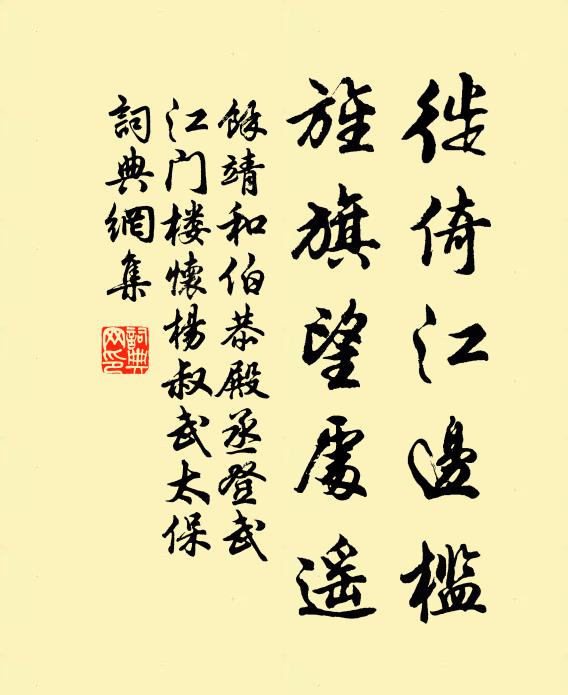 徙倚江邊檻
旌旗望處遥
餘靖和伯恭殿丞登武
江门楼懷楊叔武太保
詞典網集
詞典网印